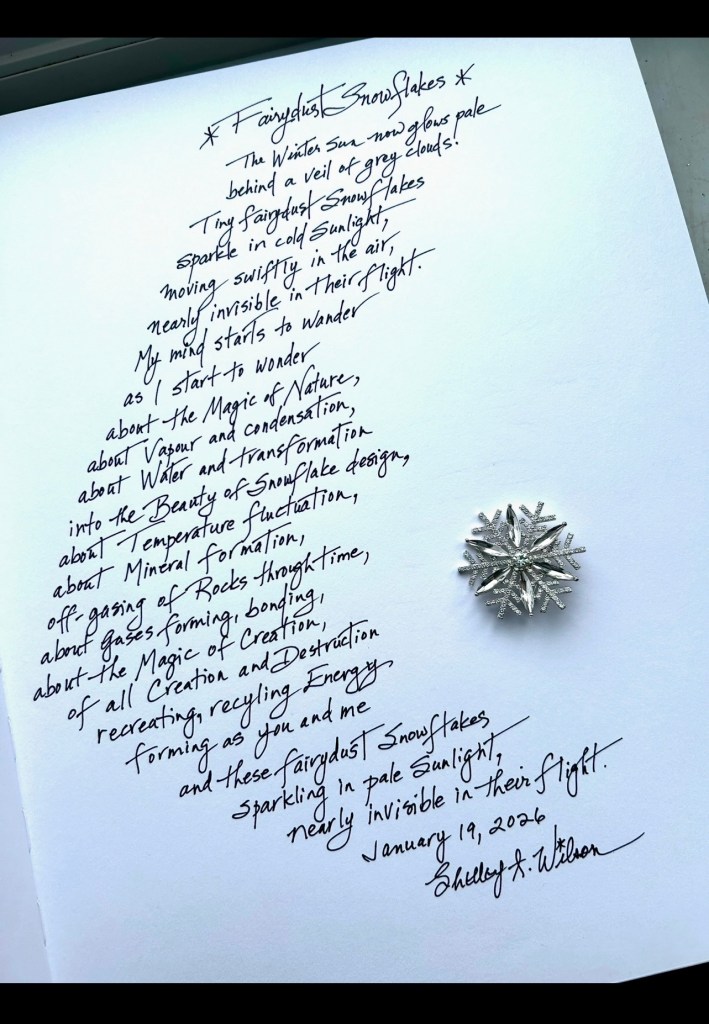 * Fairydust Snowflakes *
The Winter Sun now glows pale
behind a veil of grey clouds.
Tiny fairydust Snowflakes
sparkle in cold Sunlight,
moving swiftly in the air,
nearly invisible in their flight.
My mind starts to wander
as I start to wonder
about the Magic of Nature,
about Vapour and condensation,
about Water and transformation
into the Beauty of Snowflake design,
about Temperature fluctuation,
about Mineral formation,
off-gasing of Rocks through time,
about gases forming, bonding,
about the Magic of Creation,
of all Creation and Destruction
recreating, recyling Energy
forming as you and me
and these fairydust Snowflakes
sparkling in pale Sunlight,
nearly invisible in their flight.
January 19, 2026
Shelley A. Wilson